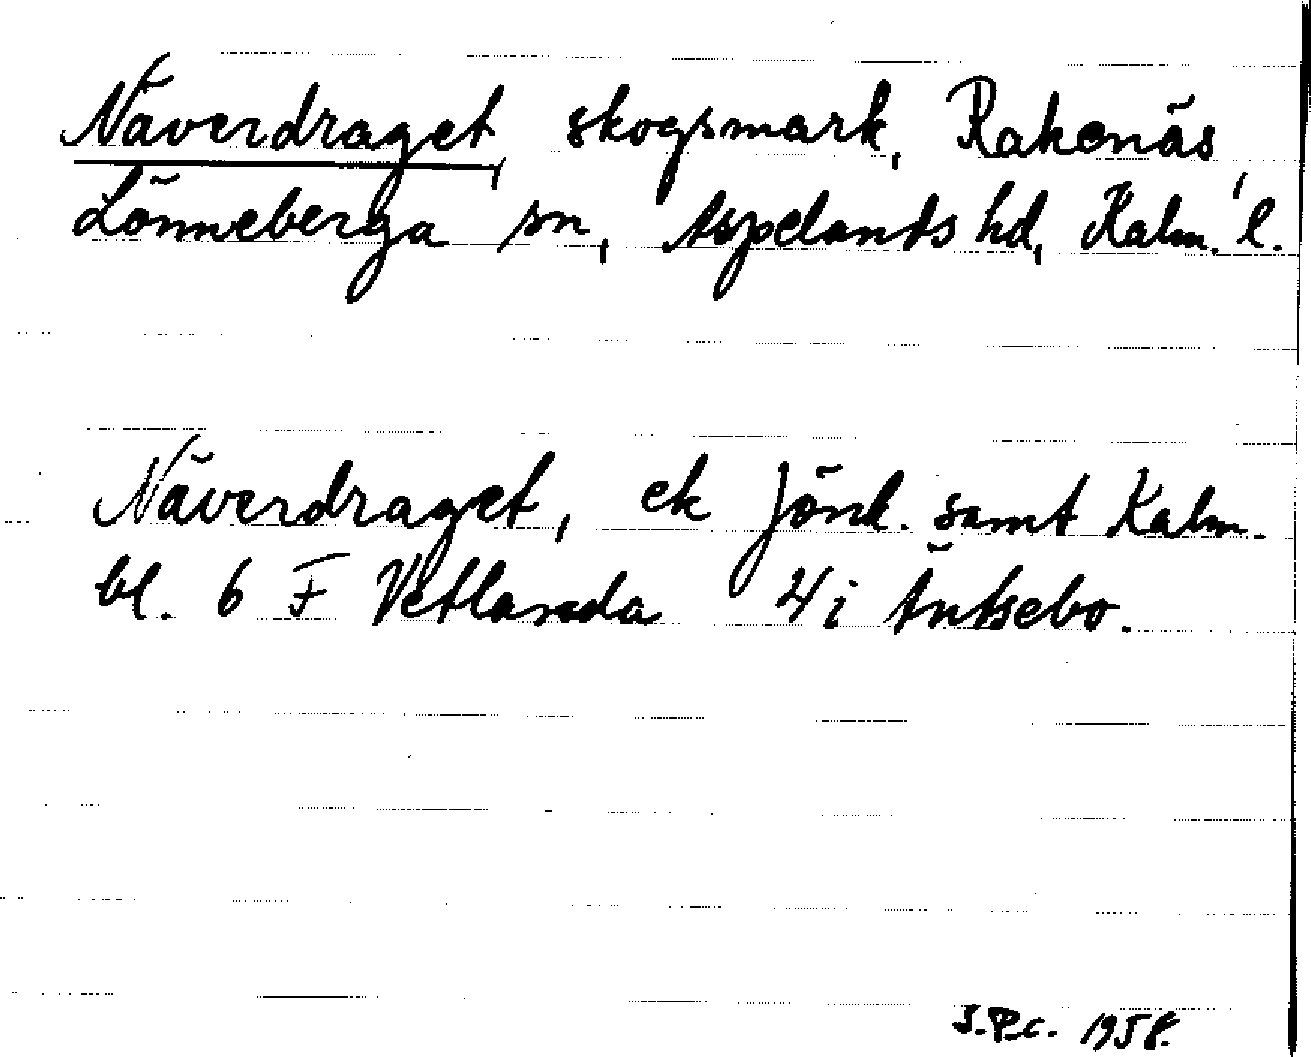 Näverdraget, skogsmark, Rakenäs,
Lönneberga sn, Aspelands hd, Kalm. l.
Näverdraget, ek Jönk. samt Kalm.
bl. 6 F Vetlanda 4i Äntsebo.
J.P.c. 1958.